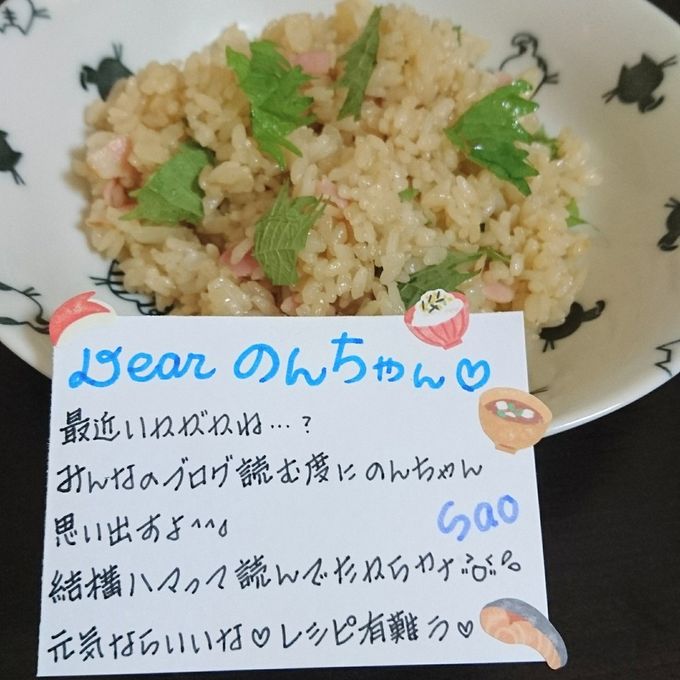 Dear のんちゃん♡
最近いかがかね…？
みんなのブログ読む度にのんちゃん
思い出すよ^^♪
Sao
結構ハマって読んでたから
元気ならいいな♡レシピ有難う♡